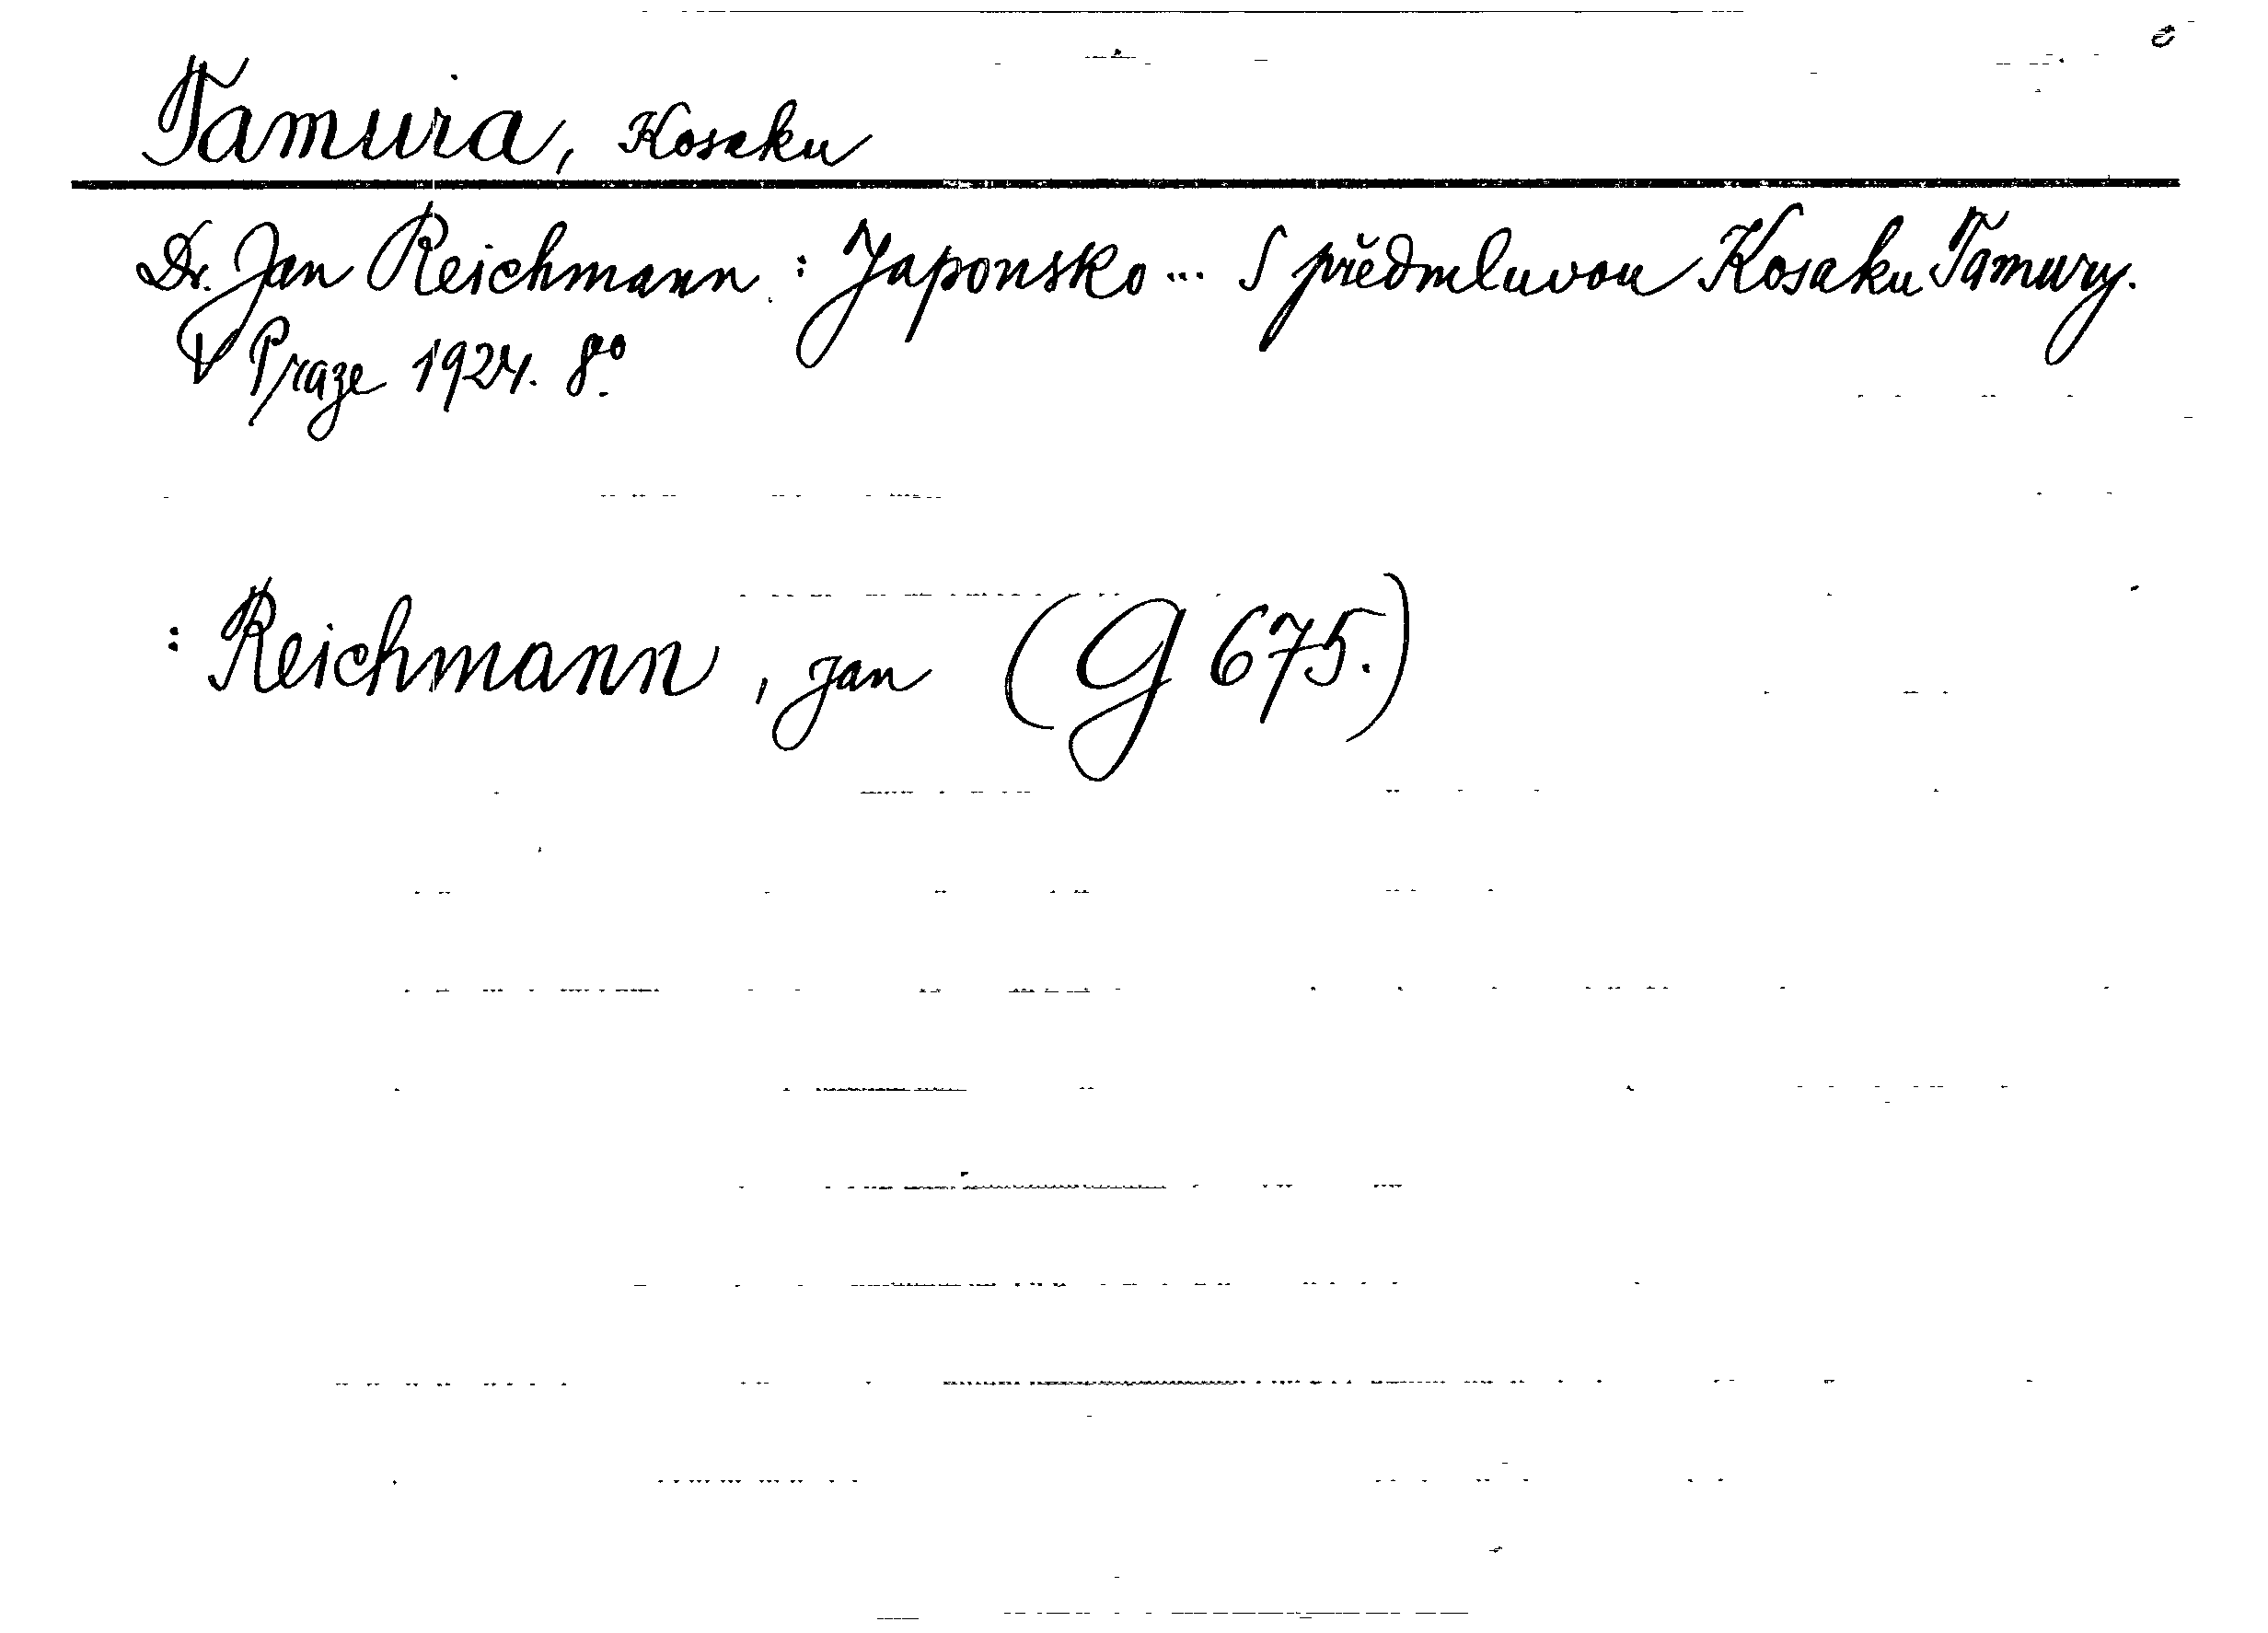 Tamura, Kosaku
Dr. Jan Reichmann: Japonsko... S předmluvou Kosaku Tamury.
V Praze 1924. 8°.
: Reichmann, Jan (G 675.)